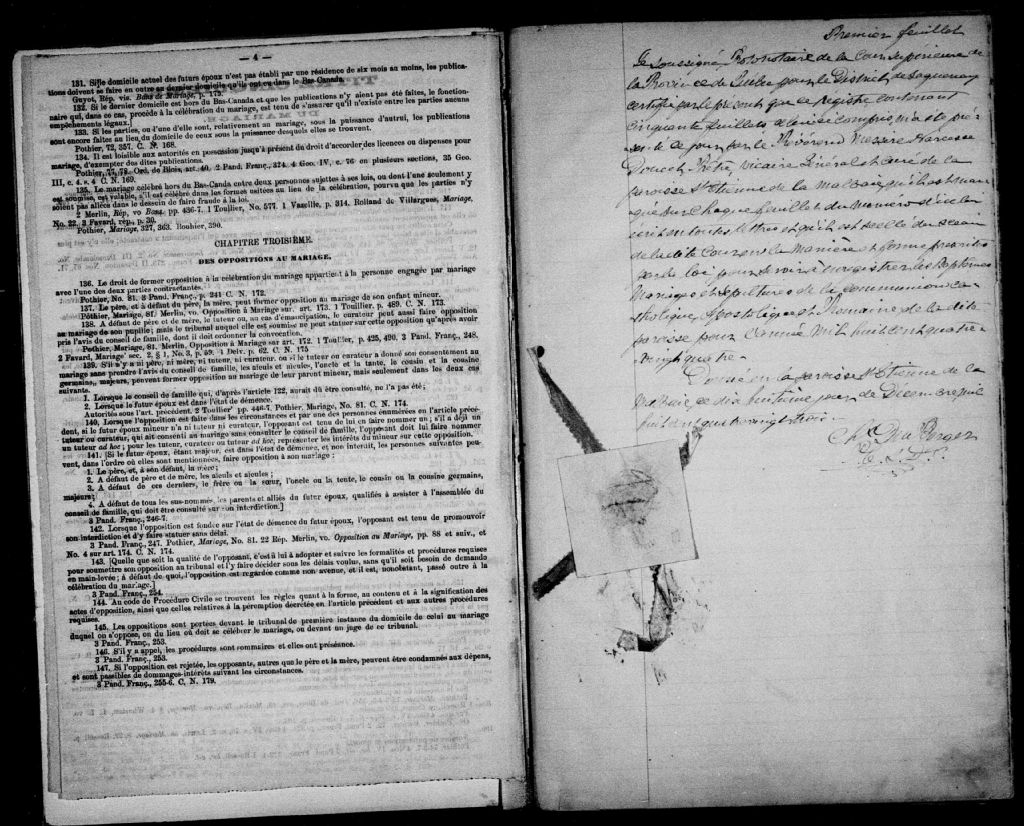 — 4 —
131. Si le domicile actuel des future époux n'est pas établi par une résidence de six mois au moins, les publica-
tions doivent se faire en outre au dernier domicile qu'ils ont eu dans le Bas-Canada.
Guyot, Rép. vis. Bans de Mariage, p. 175.
132. Si le dernier domicile est hors du Bas-Canada et que les publications n'y aient pas été faites, le fonction-
naire qui, dans ce cas, procède à la célébration du mariage, est tenu de s'assurer qu'il n'existe entre les parties aucuns
empêchements légaux.]
133. Si les parties, ou l'une d'elle sont, relativement au mariage, sous la puissance d'autrui, les publications
sont encore faites au lieu du domicile de ceux sous la puissance desquels elles se trouvent.
Pothier, 72, 357. C. N. 168.
134. Il est loisible aux autorités en possession jusqu'à présent du droit d'accorder des licences ou dispenses pour
mariage, d'exempter des dites publications.
Pothier, 77, 78. Ord. de Blois, art. 40. 2 Pand. Franç., 374. 4 Geo. IV, c. 76 en plusieurs sections, 35 Geo.
III, c. 4. s. 4 C. N. 169.
135. Le mariage célébré hors du Bas-Canda entre deux personnes sujottes à ses lois, ou dont l'une seulement y
est soumise, est valable, s'il est célébré dans les formes usitées au lieu de la célébration, pourvu que les parties n'y
soient pas allées dans le dessein de faire fraude à la loi.
2 Merlin, Rép, vo Bans. pp. 436-7. 1 Toullier, No. 577. 1 Vazeille, p. 314. Rolland de Villargues, Mariage,
No. 22. 3 Favard, rép., p. 30.
Pothier, Mariage, 327, 363. Bouhier, 390.
CHAPITRE TROISIÈME.
DES OPPOSITIONS AU MARIAGE.
136. Le droit de former opposition à la célébration du mariage appartient à la personne engagée par mariage
avec l'une des deux parties contractantes.
Pothier, No. 81. 3 Pand. Franç., p. 241 C. N. 172.
137. Le père, et à défaut du père, la mère, peut former opposition au mariage de son enfant mineur.
Pothier, Mariage, 81. Merlin, vo. Opposition à Mariage sur. art. 173. 1 Touillier. p. 489. C. N. 173.
138. A défaut de père et de mère, le tuteur ou, au cas d'émancipation, le curateur peut aussi faire opposition
au mariage de son pupille; mais le tribunal auquel elle est soumise ne peut statuer sur cette opposition qu'après avoir
pris l'avis du conseil de famille, dont il doit ordonner la convocation.
Pothier, Mariage, 81. Merlin, Opposition à Mariage sur art. 172. 1 Toullier, p. 425, 490. 3 Pand. Franç., 248.
2 Favard, Mariage' sec. 2, § 1, No. 3, p. 59. 1 Delv. p. 62. C. N. 175
139. S'il n'y a ni père, ni mère, ni tuteur, ni curateur, ou si le tuteur ou curateur a donné son consentement au
mariage sans prendre l'avis du conseil de famille, les aïeuls et aïeules, l'oncle et la tante, le cousin et la cousine
germains, majeurs, peuvent former opposition au mariage de leur parent mineur, mais seulement dans les deux cas
suivants.
1. Lorsque le conseil de famille qui, d'après l'article 122, aurait dû être consulté, ne l'a pas été;
2. Lorsque le futur époux est dans l'état de démence.
Autorités sous l'art. précédent. 2 Toullier' pp. 446-7. Pothier, Mariage, No. 81. C. N. 174.
140. Lorsque opposition est faite dans les circonstances et par une des personnes énumérées en l'article précé-
dent, si le futur époux mineur n'a ni tuteur ni curateur, l'opposant est tenu de lui en faire nommer un; s'il a déjà un
tuteur ou curateur, qui ait consenti au mariage sans consulter le conseil de famille, l'opposant doit lui faire nommer
un tuteur ad hoc; pour les tuteur, curateur ou tuteur ad hoc, représenter les intérêts du mineur sur cette opposition.
141. [Si le futur époux, étant majeur, est dans l'état de démence, et non interdit, les personnes suivantes peu-
vent, dans l'ordre où elles sont mentionnées, faire opposition à son mariage;
1. Le père, et, à son défaut, la mère;
2. A défaut de père et de mère, les aïeuls et aïeules;
3. A défaut de ces derniers, le frère ou la sœur, l'oncle ou la tante, le cousin ou la cousine germains,
majeurs;
4. A défaut de tous les sus-nommés, les parents et alliés du futur époux, qualifiés à assister à l'assemblée du
conseil de famille, qui doit être consulté sur son interdiction.]
3 Pand. Franç., 246-7.
142. Lorsque l'opposition est fondée sur l'état de démence du futur époux, l'opposant est tenu de promouvoir
son interdiction et d'y faire statuer sans délai.
3 Pand. Franç., 247. Pothier, Mariage, No. 81. 22 Rép. Merlin, vo. Opposition au Mariage, pp. 88 et suiv., et
No. 4 sur art. 174. C. N. 174.
143. [Quelle que soit la qualité de l'opposant, c'est à lui à adopter et suivre les formalités et procédures requises
pour soumettre son opposition au tribunal et l'y faire décider sous les délais voulus, sans qu'il soit besoin de demande
en main-levée; à défaut de quoi, l'opposition est regardée comme non avenue, et il est, nonobstant, passé outre à la
célébration du mariage.]
3 Pand. Franç., 254.
144. Au code de Procédure Civile se trouvent les règles quant à la forme, au contenu et à la signification des
actes d'opposition, ainsi que celles relatives à la péremption décrétée en l'article précédent et aux autres procédures
requises.
145. Les oppositions sont portées devant le tribunal de première instance du domicile de celui au mariage
duquel on s'oppose, ou du lieu où doit se célébrer le mariage, ou devant un juge de ce tribunal.
3 Pand. Franç., 253.
146. S'il y a appel, les procédures sont sommaires et elles ont préséance.
3 Pand. Franç., 253.
147. Si l'opposition est rejetée, les opposants, autres que le père et la mère, peuvent être condamnés aux dépens,
et sont passibles de dommages-intérêts suivant les circonstances.
3 Pand. Franç., 255-6. C. N. 179.
Premier feuillet
Je Soussigné, Protonotaire de la Cour Supérieure de
la Province de Québec, pour le District de Saguenay
certifie par le présent que ce registre contenant
cinquante feuillets celui-ci compris, m'a été pré-
senté ce jour par le Révérend Messire Narcisse
Doucet Prêtre, vicaire Général et curé de la
paroisse St Etienne de la Malbaie qu'il est mar-
qué sur chaque feuillet du numéro d'icelui
écrit en toutes lettres et qu'il est scellé du sceau
de la dite Cour en la manière et forme prescrites
par la loi pour servir à enregistrer les Baptêmes
Mariages et sépultures de la communion ca-
tholique, Apostolique et Romaine de la dite
paroisse pour l'année mil huit cent quatre-
vingt quatre-
Donné en la paroisse St Etienne de la
Malbaie, ce dix huitième jour de Décembre mil
huit cent quatre vingt trois.